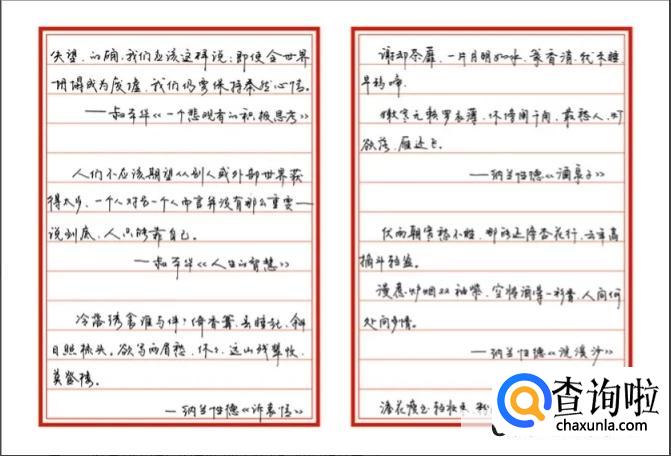 失望。的确，我们应该这样说：即使全世界
坍塌成为废墟，我们仍要保持泰然心情。
——叔本华《一个悲观者的积极思考》
人们不应该期望从别人或外部世界获
得太多，一个人对另一个人而言并没有那么重要——
说到底，人只能靠自己。
——叔本华《人生的智慧》
冷落绣衾谁与伴？倚香篝。春睡起，斜
日照梳头。欲写两眉愁，休休。远山残翠收。
莫登楼。
——纳兰性德《诉衷情》
谢却荼蘼，一片月明如水。篆香消，犹未睡，
早鸦啼。
嫩寒无赖罗衣薄，休傍阑干角。最愁人，灯
欲落，雁还飞。
——纳兰性德《酒泉子》
伏雨朝寒愁不胜，那能还傍杏花行。去年高
摘斗轻盈。
漫惹炉烟双袖紫，空将酒晕一衫青。人间何
处问多情。
——纳兰性德《浣溪沙》
查询啦
chaxunla.com